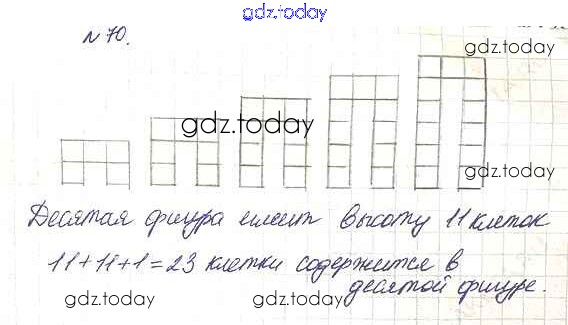 gdz.today
№ 70.
gdz.today
gdz.today
gdz.today
Десятая фигура имеет высоту 11 клеток
11+11+1=23 клетки содержится в
десятой фигуре.
gdz.today
gdz.today
gdz.today